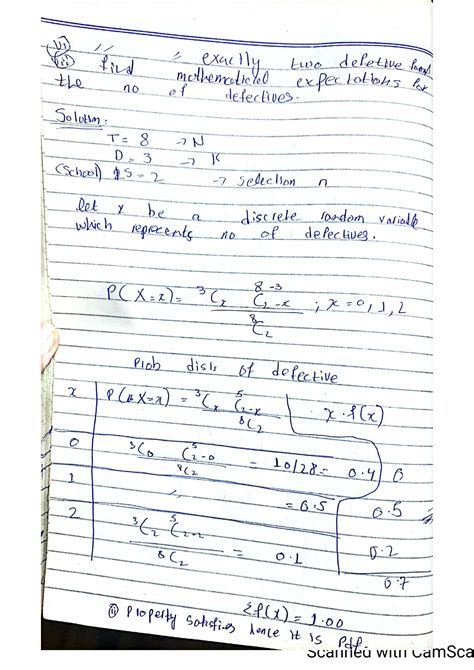 vi) " " exactly two defetive
vii) find mathematical expectations for
the no of defectives.
Solution:
T = 8 → N
D = 3 → K
(School) S = 2 → selection n
let x be a discrete random variable
which represents no of defectives.
P(X=x) = ³Cx ⁸⁻³C₂₋x / ⁸C₂ ; x = 0, 1, 2
Prob dists of defective
x P(X=x) = ³Cx ⁵C₂₋x / ⁸C₂ x·f(x)
0 ³C₀ ⁵C₂₋₀ / ⁸C₂ = 10/28 = 0.4 0
1 " = 0.5 0.5
2 ³C₂ ⁵C₂₋₂ / ⁸C₂ = 0.1 0.2
0.7
Σf(x) = 1.00
Property satisfies hence it is Pdf
Scanned with CamSca